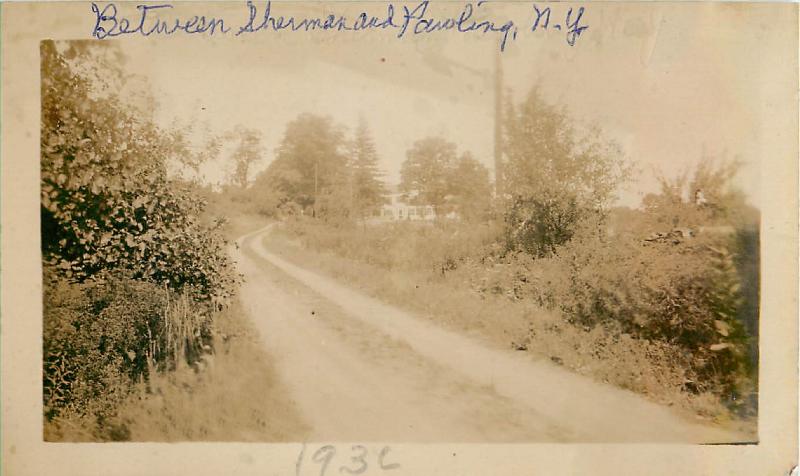 Between Sherman and Pawling, N.Y.